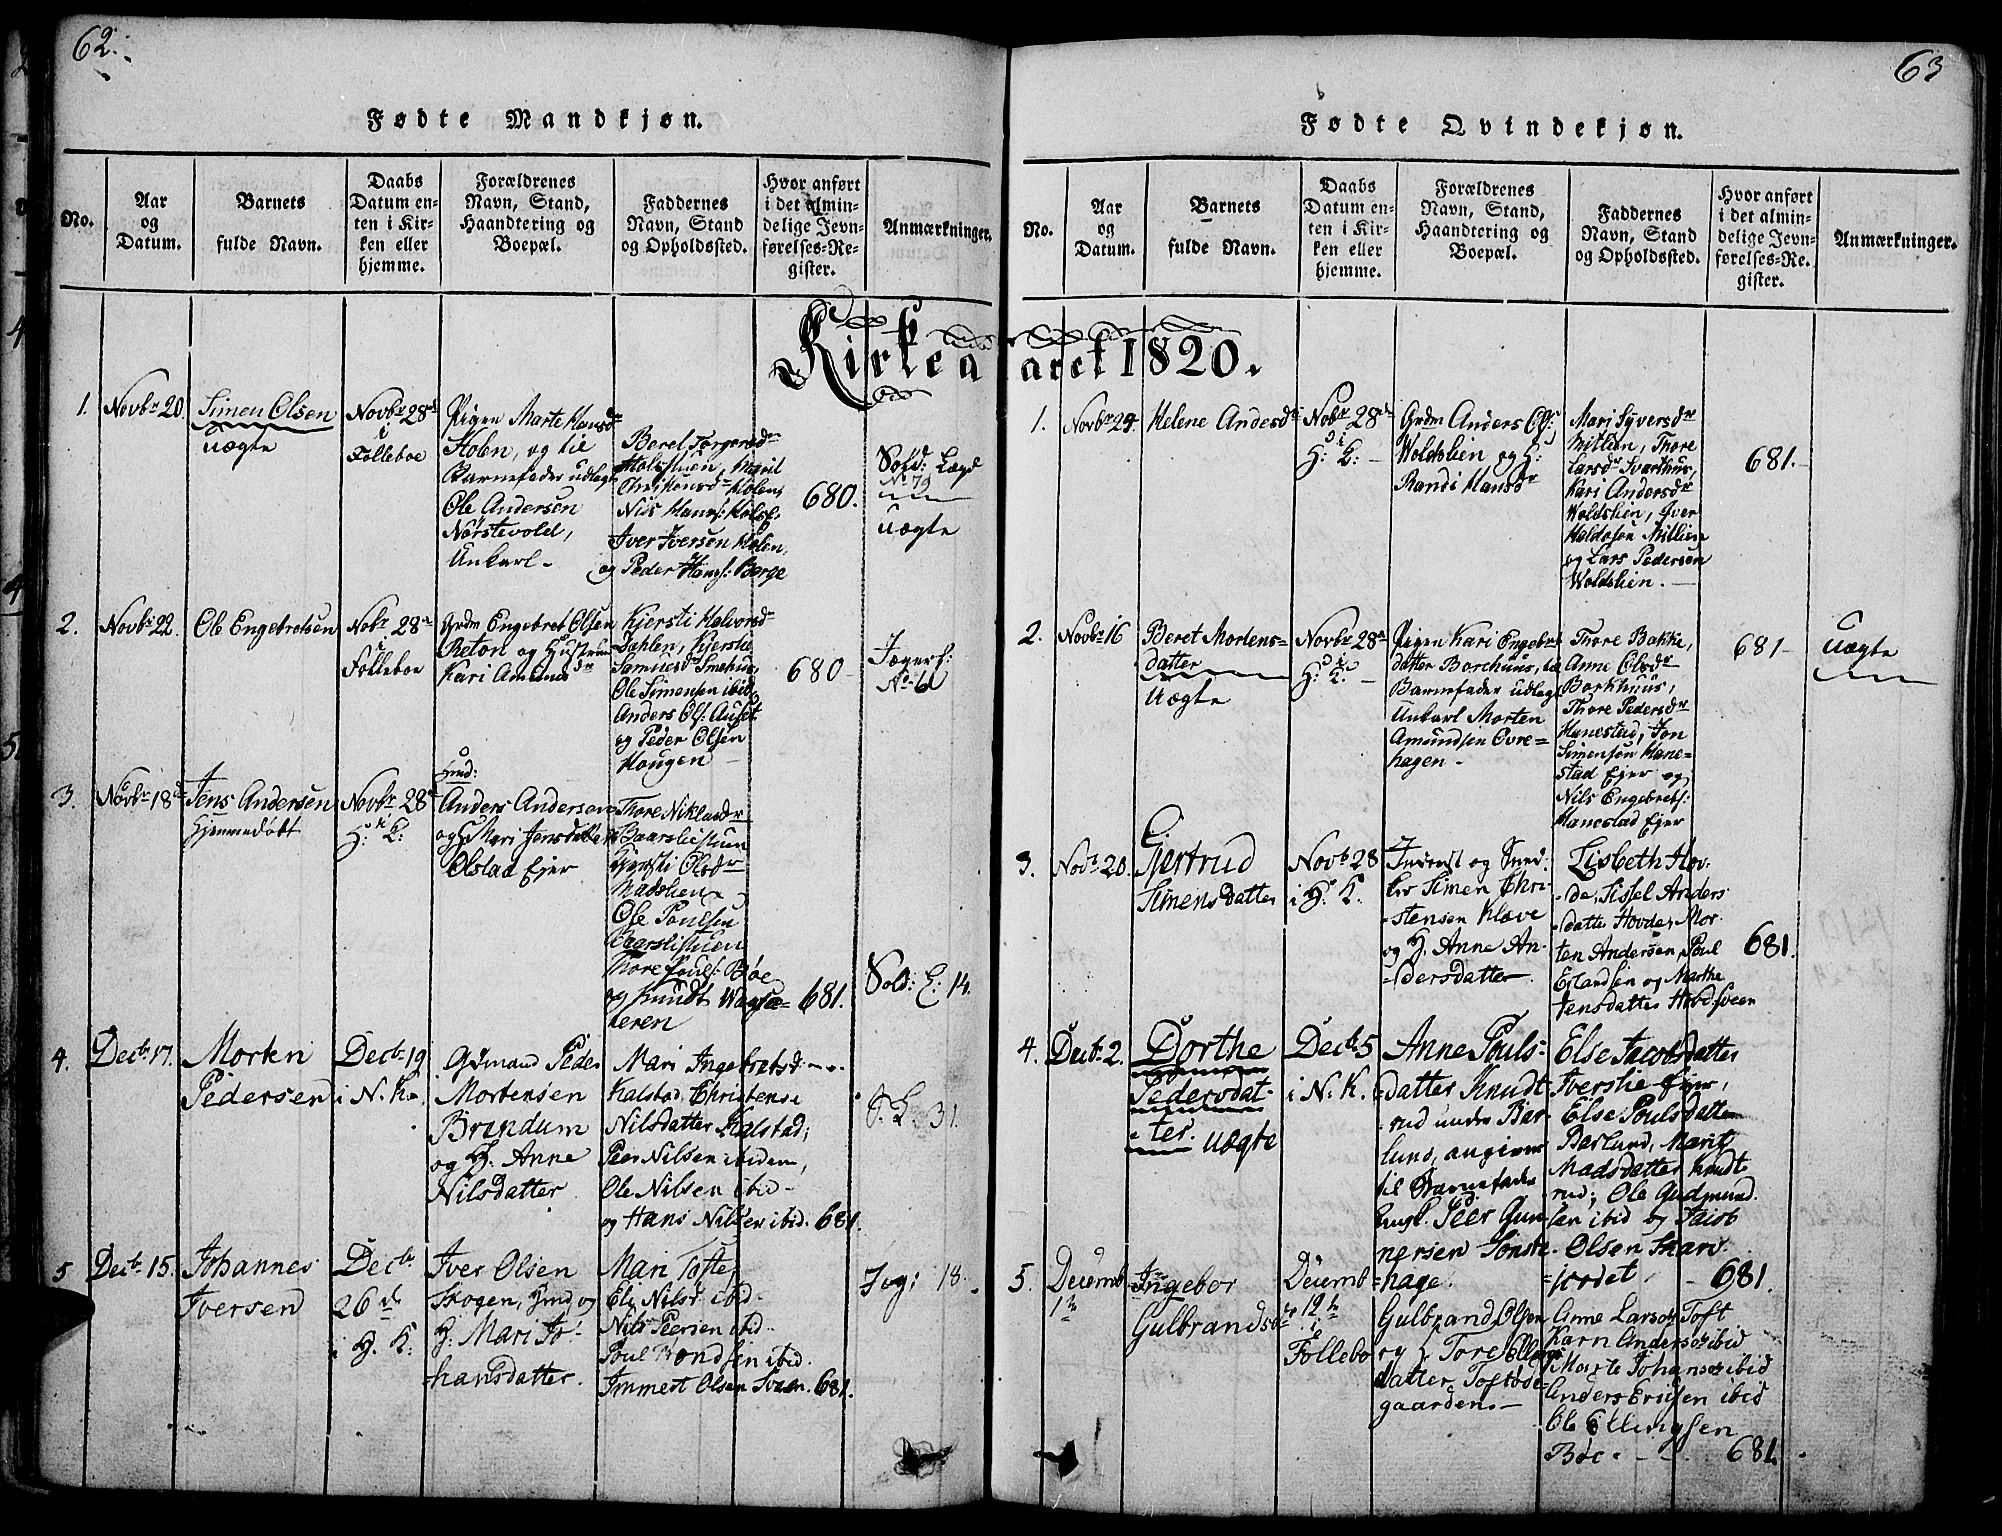 62.
Fødte Mandkjøn.
No.
Aar
og
Datum.
Barnets
fulde Navn.
Daabs
Datum en-
ten i Kir-
ken eller
hjemme.
Forældrenes
Navn, Stand,
Haandtering og
Boepæl.
Faddernes
Navn, Stand
og Opholdssted.
Hvor anført
i det almin-
delige Jevn-
førelses-Re-
gister.
Anmærkninger.
Kirkeaaret 1820.
1.
Novbr 20
Simen Olsen
uægte
Novbr 28de
i
Folleboe
Pigen Marte Hansdr
Holen, og til
Barnefader udlagt
Ole Andersen
Norstevold,
Unkarl -
Beret Torgersdr
Holsstuen, Ingril
Christensdr Holen,
Nils Hans: Holst:
Iver Iversen Holen,
og Peder Hans: Berge
680.
Sold: Lægd
No 79
uægte
2.
Novbr 22.
Ole Engebretsen
Nobr 28de
i
Folleboe
Grdm Engebret Olsen
Reton og Hustrue
Kari Amundsdr
Kjersti Halvorsdr
Dahlen, Kjersti
Samuelsdr Smehus,
Ole Simensen ibid,
Anders Ols: Auset
og Peder Olsen
Haugen
680 -
Jægerf:
No 61
3.
Novbr 18de
Jens Andersen
Hjemmedøbt
Novbr 28de
H: K:
Hmd:
Anders Andersen
og H Mari Jensdatter
Olstad Ejer
Thore Niklasdr
Baarslistuen
Kjersti Olsdr
Madslien
Ole Poulsen
Baarslistuen
Thore Pouls: Bøe
og Knudt Wagsæ-
teren
681.
Sold: L: 14.
4.
Decbr 17.
Morten
Pedersen
Decbr 19
i N. K.
Gdmand Peder
Mortensen
Brændum
og H. Anne
Nilsdatter
Mari Ingebretsd -
Kalstad, Christense
Nilsdatter Kalstad;
Peer Nilsen ibidem,
Ole Nilsen ibid -
og Hans Nilsen ibid. 681.
S: L: 31.
5
Decbr 15.
Johannes
Iversen
Decbr
26de
i H. K.
Iver Olsen
Skogen, Hmd og
H: Mari Jo-
hansdatter.
Mari Tofte,
Eli Nilsd ibid.
Nils Peersen ibid.
Poul Trondsen ibid.
Immert Olsen Sveen. 681.
Jeg: 18.
63
Fødte Qvindekjøn.
No.
Aar
og
Datum.
Barnets
fulde Navn.
Daabs
Datum en-
ten i Kir-
ken eller
hjemme.
Forældrenes
Navn, Stand,
Haandtering og
Boepæl.
Faddernes
Navn, Stand
og Opholdssted.
Hvor anført
i det almin-
delige Jevn-
førelses-Re-
gister.
Anmærkninger.
1.
Novbr 24
Helene Andersdr
Nobr 28de
i
H: K: -
Grdm Anders Ols:
Woldslien og H:
Randi Hansdr
Mari Syversdr
Mitlien, Thore
Larsdr Svarthus,
Kari Andersdr
Woldslien, Iver
Haldosen Mitlien
og Lars Pedersen
Woldslien. -
681.-
2.
Novbr 16
Beret Mortens-
datter
Uægte
Novbr 28de
i
H: K. -
Pigen Kari Engebrets
datter Borchuus, til
Barnefader udlagt
Unkarl Morten
Amundsen Ovre-
hagen -
Thore Bakke,
Anne Olsdr
Borkhuus,
Thore Pedersdr
Hanestad, Jon
Simensen Hane-
stad Ejer og
Nils Engebrets:
Hanestad Ejer
681 -
Uægte
3.
Novb. 20.
Gjertrud
Simensdatter
Novb 28
i H. K.
Inderst og Smed:
ker Simen Chri-
stensen Klæve
og H. Anne An-
dersdatter
Lisbeth Hov-
de, Sissel Anders
datter Hovde, Mor-
ten Andersen, Poul
Erlandsen og Marthe
Jensdatter Hovdsveen
681.
4.
Decbr 2.
Dorthe
Pedersdat-
ter. uægte
Decb 5
i N. K.
Anne Pouls-
datter Knudt
rud under Bær-
lund, angiver
til Barnefader
Ungk. Peer Gun
nersen Sonste-
hage.
Else Jacobsdatter
Iverslie Ejer,
Else Poulsdatter
Bærlund, Marit
Madsdatter Knudt
rud; Ole Gudmund.
sen ibid og Jacob
Olsen Skarv.
jordet - 681.
5.
Decemb
1te
Ingebor
Gulbrandsdr
Decemb
12te
i
Follebo
Gulbrand Olsen
og H Tore Ellings
datter Toftøde-
gaarden. -
Anne Larsdr Toft
Karn Andersdr ibid
Marte Johansdr ibid
Anders Ericsen ibid
Ole Ellingsen
Böe - - 681.